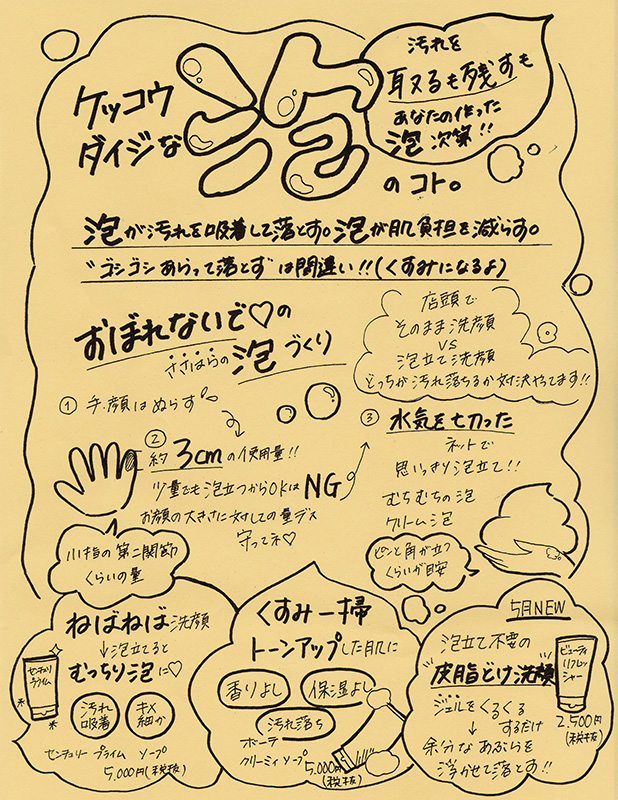 ケッコウ
ダイジな
泡
のコト。
汚れを
取るも残すも
あなたの作った
泡次第!!
泡が汚れを吸着して落とす。泡が肌負担を減らす。
"ゴシゴシあらって落とす"は間違い!!(くすみになるよ)
おぼれないで♡の
ささはらの泡づくり
店頭で
そのまま洗顔
VS
泡立て洗顔
どっちが汚れ落ちるか対決やってます!!
① 手・顔はぬらす
②
約3cmの使用量!!
少量でも泡立つからOKはNG
お顔の大きさに対しての量デス
守ってネ♡
小指の第二関節
くらいの量
③ 水気を切った
ネットで
思いっきり泡立て!!
むちむちの泡
クリーム泡
ピンと角が立つ
くらいが目安
ねばねば洗顔
↓泡立てると
むっちり泡に♡
センチュリー
プライム
汚れ
吸着
キメ
細か
センチュリー プライム ソープ
5.000円(税抜)
くすみ一掃
トーンアップした肌に
香りよし
保湿よし
汚れ落ち
ボーテ
クリーミィソープ
5.000円
(税抜)
5月NEW
泡立て不要の
"皮脂どけ洗顔"
ジェルをくるくる
↓ するだけ
余分なあぶらを
浮かせて落とす!!
ビューティ
リフレッ
シャー
2.500円
(税抜)